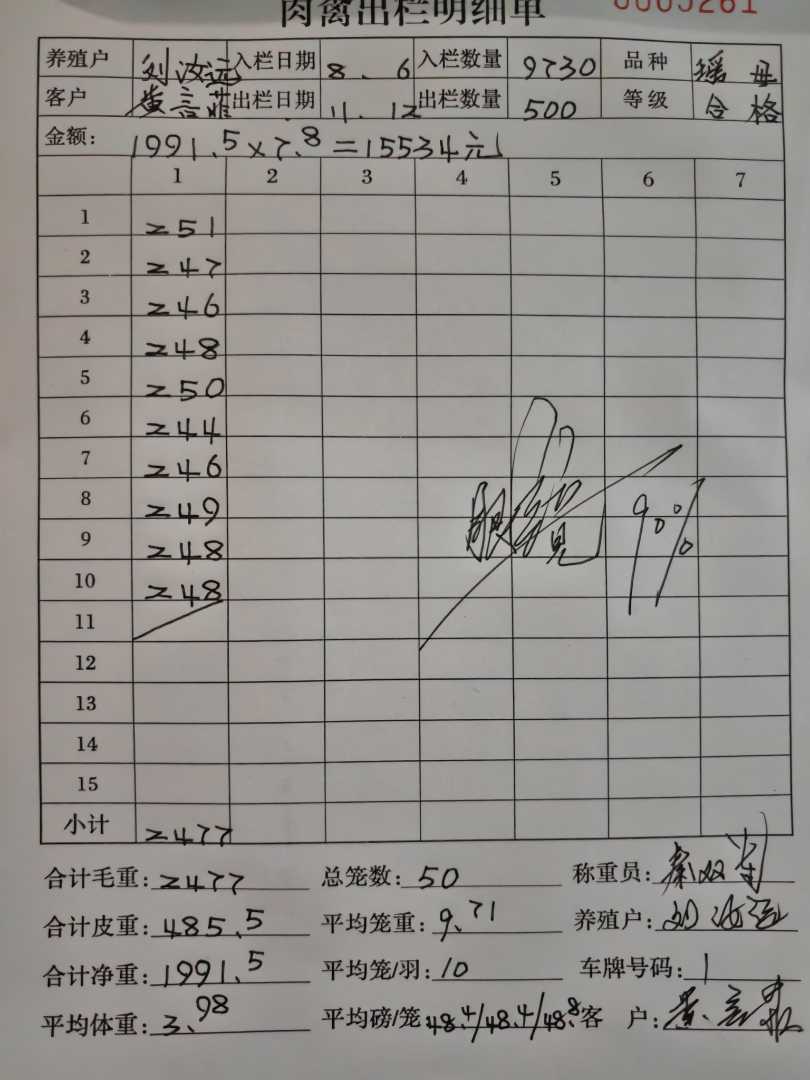 肉禽出栏明细单 0005261
养殖户 刘汝远 入栏日期 8.6 入栏数量 9730 品种 瑶母
客户 黄言菲 出栏日期 11.12 出栏数量 500 等级 合格
金额: 1991.5×7.8=15534元
1 2 3 4 5 6 7
1 251
2 247
3 246
4 248
5 250
6 244
7 246
8 249
9 248 90%
10 248
11
12
13
14
15
小计 2477
合计毛重: 2477 总笼数: 50 称重员:
合计皮重: 485.5 平均笼重: 9.71 养殖户: 刘汝远
合计净重: 1991.5 平均笼/羽: 10 车牌号码: 1
平均体重: 3.98 平均磅/笼 48.4/48.4/48.8 客 户: 黄言菲